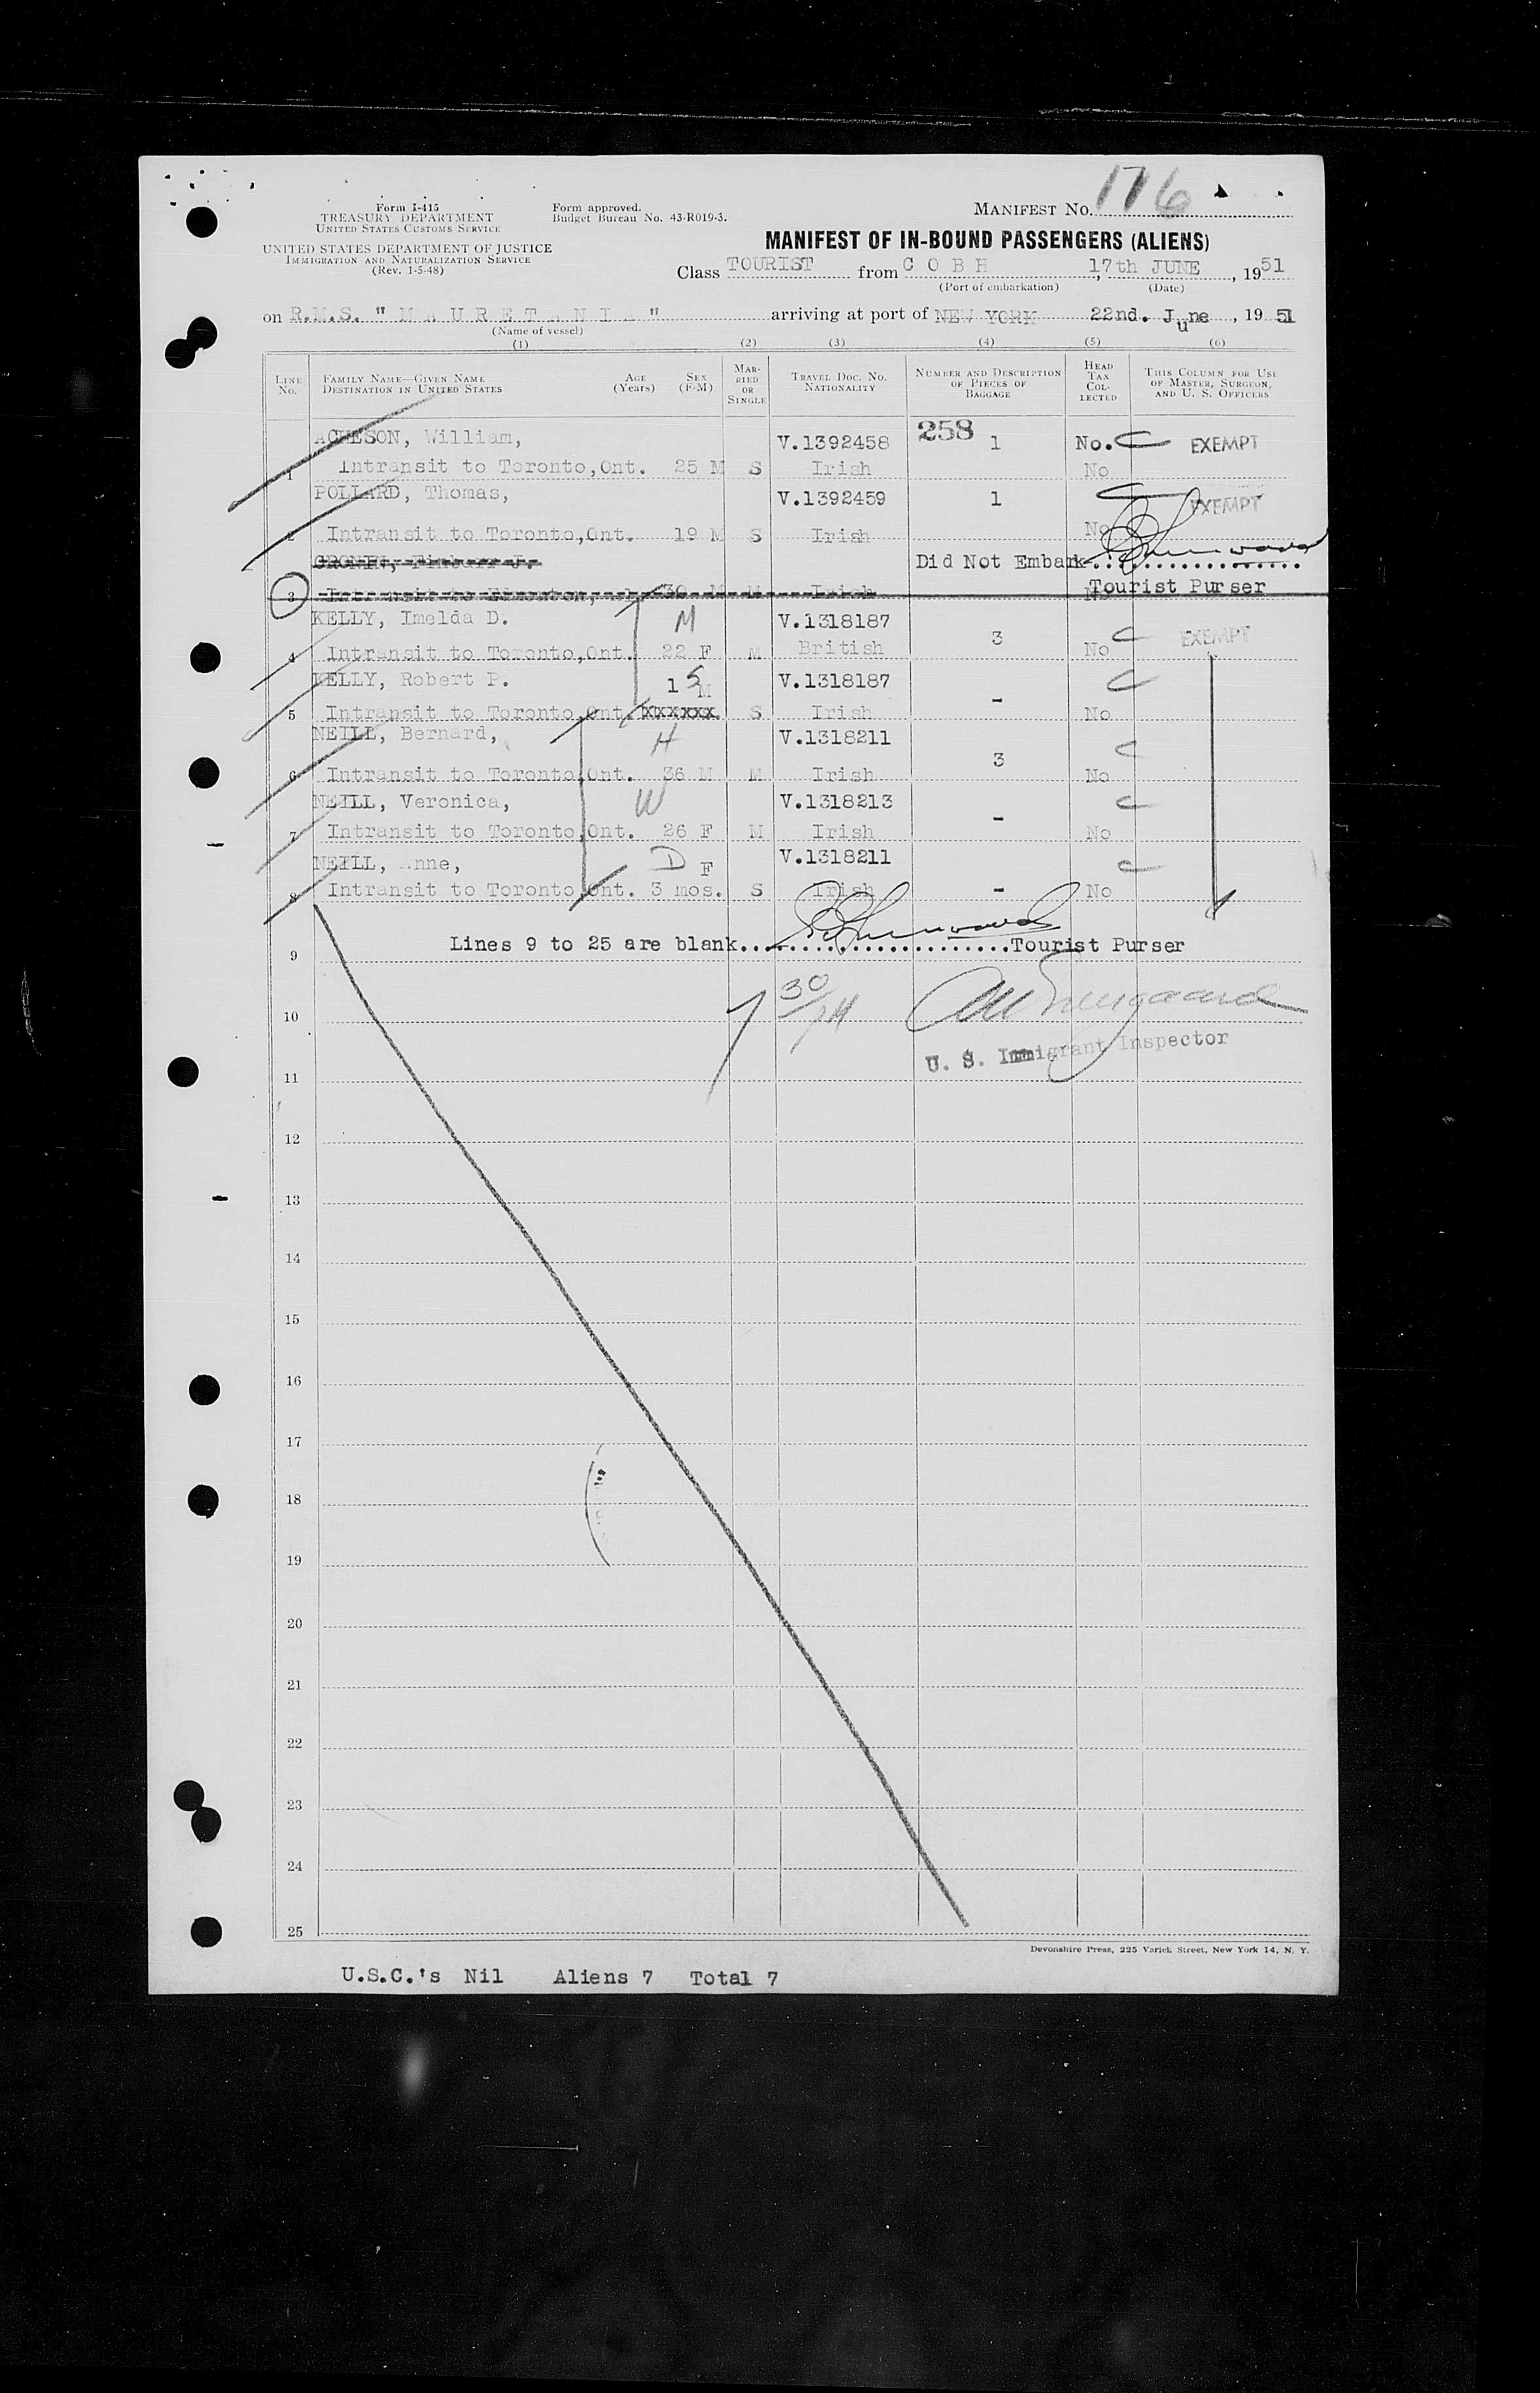 176
Form I-415
TREASURY DEPARTMENT
UNITED STATES CUSTOMS SERVICE
Form approved.
Budget Bureau No. 43-R019-3.
MANIFEST NO.
UNITED STATES DEPARTMENT OF JUSTICE
IMMIGRATION AND NATURALIZATION SERVICE
(Rev. 1-5-48)
MANIFEST OF IN-BOUND PASSENGERS (ALIENS)
Class TOURIST from C O B H, 17th JUNE, 1951
(Port of embarkation) (Date)
on R.M.S. " M A U R E T A N I A " arriving at port of NEW YORK 22nd. June, 1951
(Name of vessel)
(1) (2) (3) (4) (5) (6)
LINE NO.
FAMILY NAME—GIVEN NAME
DESTINATION IN UNITED STATES
AGE (Years)
SEX (F-M)
MARRIED OR SINGLE
TRAVEL DOC. NO. NATIONALITY
NUMBER AND DESCRIPTION OF PIECES OF BAGGAGE
HEAD TAX COLLECTED
THIS COLUMN FOR USE OF MASTER, SURGEON, AND U. S. OFFICERS
ACHESON, William, V.1392458 258 1 No. C EXEMPT
1 Intransit to Toronto,Ont. 25 M S Irish No
POLLARD, Thomas, V.1392459 1 C EXEMPT
2 Intransit to Toronto,Ont. 19 M S Irish No
CRONIN, Finbarr J. Did Not Embark
3 Intransit to 30 M M Irish No Tourist Purser
KELLY, Imelda D. M V.1318187 3 C EXEMPT
4 Intransit to Toronto,Ont. 22 F M British No
KELLY, Robert P. 1 S M V.1318187 - C
5 Intransit to Toronto,Ont. xxxxxx S Irish No
NEILL, Bernard, H V.1318211 3 C
6 Intransit to Toronto,Ont. 36 M M Irish No
NEILL, Veronica, W V.1318213 - C
7 Intransit to Toronto,Ont. 26 F M Irish No
NEILL, Anne, D F V.1318211 C
8 Intransit to Toronto,Ont. 3 mos. S Irish - No
9 Lines 9 to 25 are blank. Tourist Purser
30
10
U. S. Immigrant Inspector
11
12
13
14
15
16
17
18
19
20
21
22
23
24
25
Devonshire Press, 225 Varick Street, New York 14, N. Y.
U.S.C.'s Nil Aliens 7 Total 7